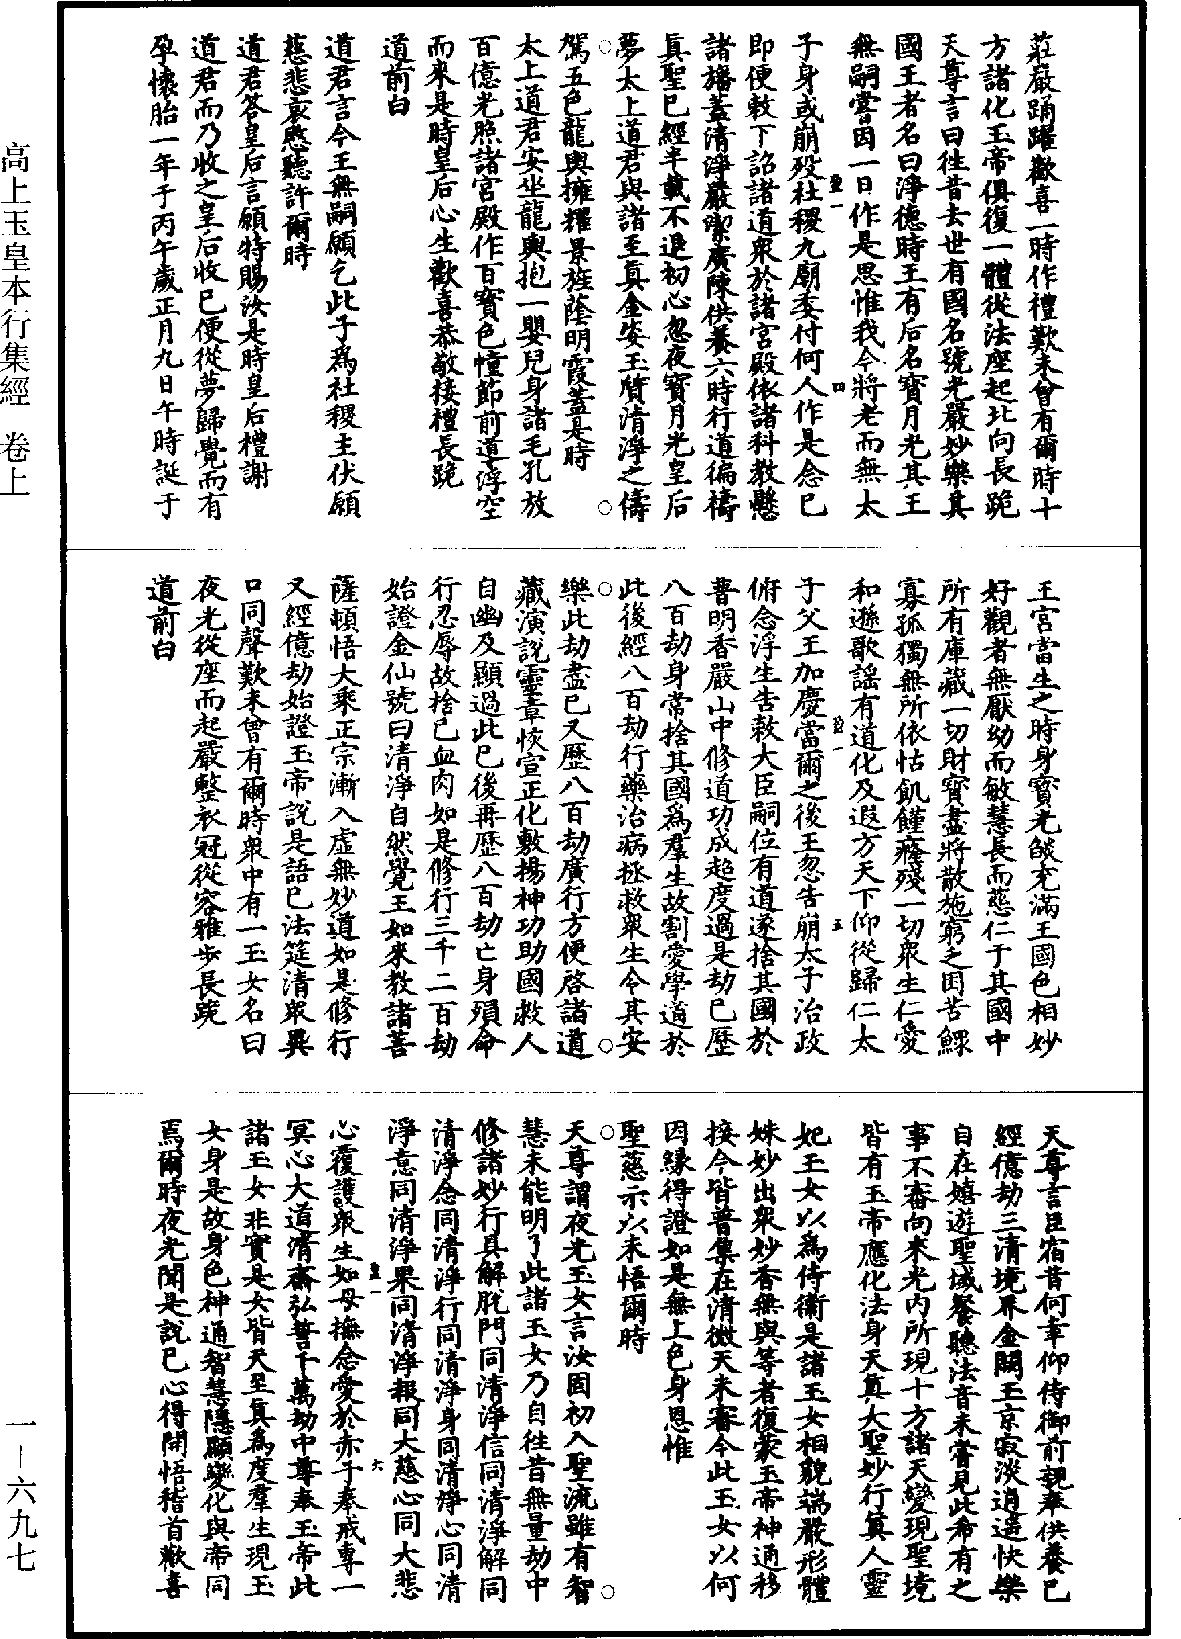 莊嚴踊躍歡喜一時作禮歎未曾有爾時十
方諸化玉帝俱復一體從法座起北向長跪
天尊言曰往昔去世有國名號光嚴妙樂其
國王者名曰淨德時王有后名寶月光其王
無嗣嘗因一日作是思惟我今將老而無太
子身或崩歿社稷九廟委付何人作是念已
即便敕下詔諸道衆於諸宮殿依諸科教懸
諸旛蓋清淨嚴潔廣陳供養六時行道徧禱
眞聖已經半載不退初心忽夜寶月光皇后
夢太上道君與諸至眞金姿玉質清淨之儔
駕五色龍輿擁耀景旌蔭明霞蓋是時
太上道君安坐龍輿抱一嬰兒身諸毛孔放
百億光照諸宮殿作百寶色幢節前道浮空
而來是時皇后心生歡喜恭敬接禮長跪
道前白
道君言今王無嗣願乞此子爲社稷主伏願
慈悲哀愍聽許爾時
道君答皇后言願特賜汝是時皇后禮謝
道君而乃收之皇后收已便從夢歸覺而有
孕懷胎一年于丙午歲正月九日午時誕于
王宮當生之時身寶光燄充滿王國色相妙
好觀者無厭幼而敏慧長而慈仁于其國中
所有庫藏一切財寶盡將散施窮乏困苦鰥
寡孤獨無所依怙飢饉癃殘一切衆生仁愛
和遜歌謠有道化及遐方天下仰從歸仁太
子父王加慶當爾之後王忽告崩太子治政
俯念浮生告敕大臣嗣位有道遂捨其國於
普明香嚴山中修道功成超度過是劫已歷
八百劫身常捨其國爲羣生故割愛學道於
此後經八百劫行藥治病拯救衆生令其安
樂此劫盡已又歷八百劫廣行方便啓諸道
藏演說靈章恢宣正化敷揚神功助國救人
自幽及顯過此已後再歷八百劫亡身殞命
行忍辱故捨己血肉如是修行三千二百劫
始證金仙號曰清淨自然覺王如來教諸菩
薩頓悟大乘正宗漸入虛無妙道如是修行
又經億劫始證玉帝說是語已法筵清衆異
口同聲歎未曾有爾時衆中有一玉女名曰
夜光從座而起嚴整衣冠從容雅步長跪
道前白
天尊言臣宿昔何幸仰侍御前親奉供養已
經億劫三清境界金闕玉京寂淡逍遙快樂
自在嬉遊聖域餐聽法音未嘗見此希有之
事不審向來光內所現十方諸天變現聖境
皆有玉帝應化法身天眞大聖妙行眞人靈
妃玉女以爲侍衛是諸玉女相貌端嚴形體
姝妙妙出衆妙香無與等者復蒙玉帝神通移
接今皆普集在清微天未審今此玉女以何
因緣得證如是無上色身恩惟
聖慈示以未悟爾時
天尊謂夜光玉女言汝因初入聖流雖有智
慧未能明了此諸玉女乃自往昔無量劫中
修諸妙行具解脫門同清淨信同清淨解同
清淨念同清淨行同清淨身同清淨心同清
淨意同清淨果同清淨報同大慈心同大悲
心覆護衆生如母撫念愛於赤子奉戒專一
冥心大道清齋弘誓千萬劫中尊奉玉帝此
諸玉女非實是女皆天至眞爲度羣生現玉
女身是故身色神通智慧隱顯變化與帝同
焉爾時夜光聞是說已心得開悟稽首歡喜
高上玉皇本行集經 卷上
一－六九七